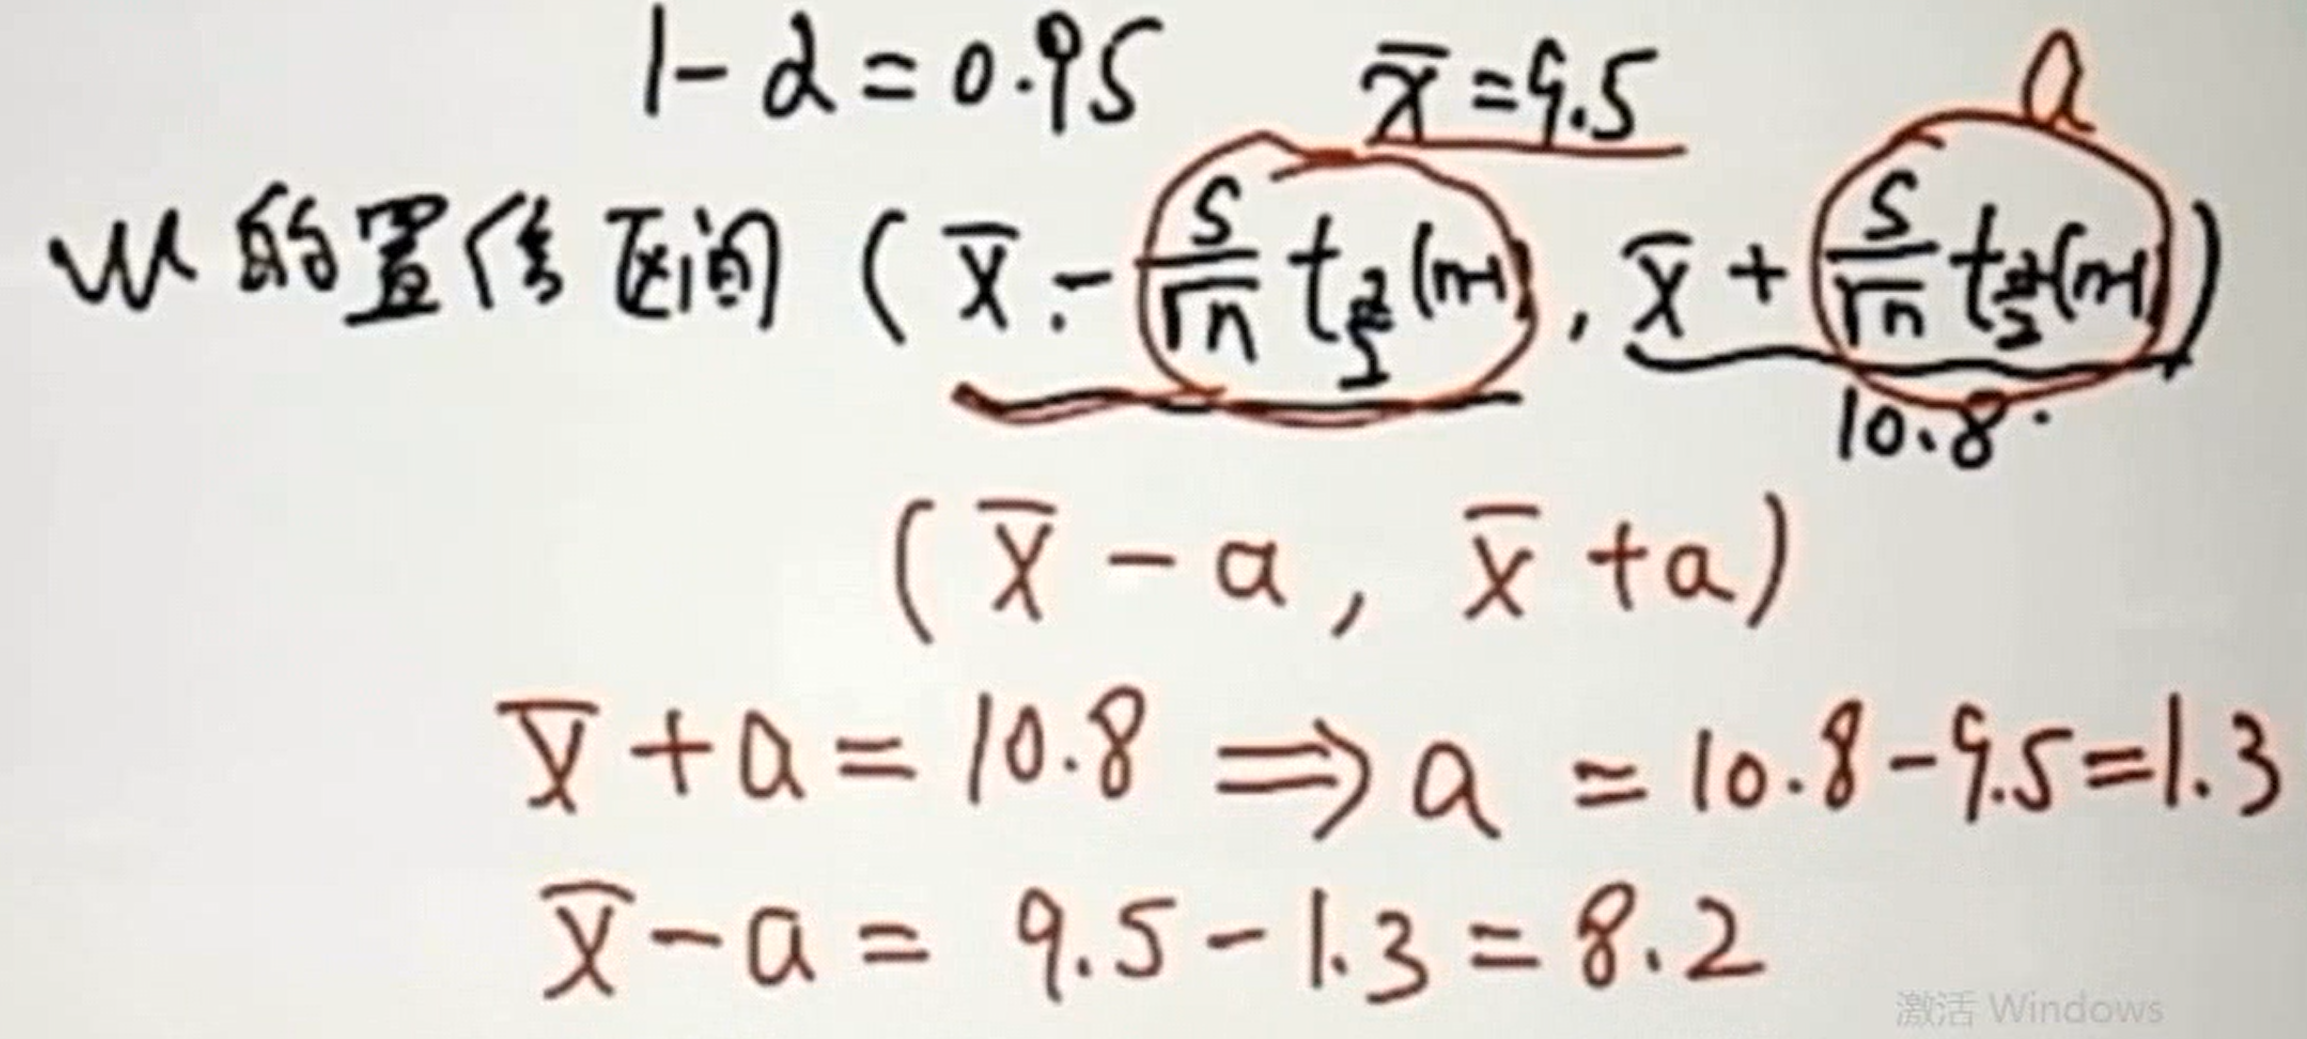 1-α=0.95 x̄=9.5 a
μ的置信区间 (x̄ - s/√n t_{α/2}(n-1), x̄ + s/√n t_{α/2}(n-1))
10.8
(x̄ - a, x̄ + a)
x̄ + a = 10.8 ⟹ a = 10.8-9.5=1.3
x̄ - a = 9.5-1.3=8.2
激活 Windows